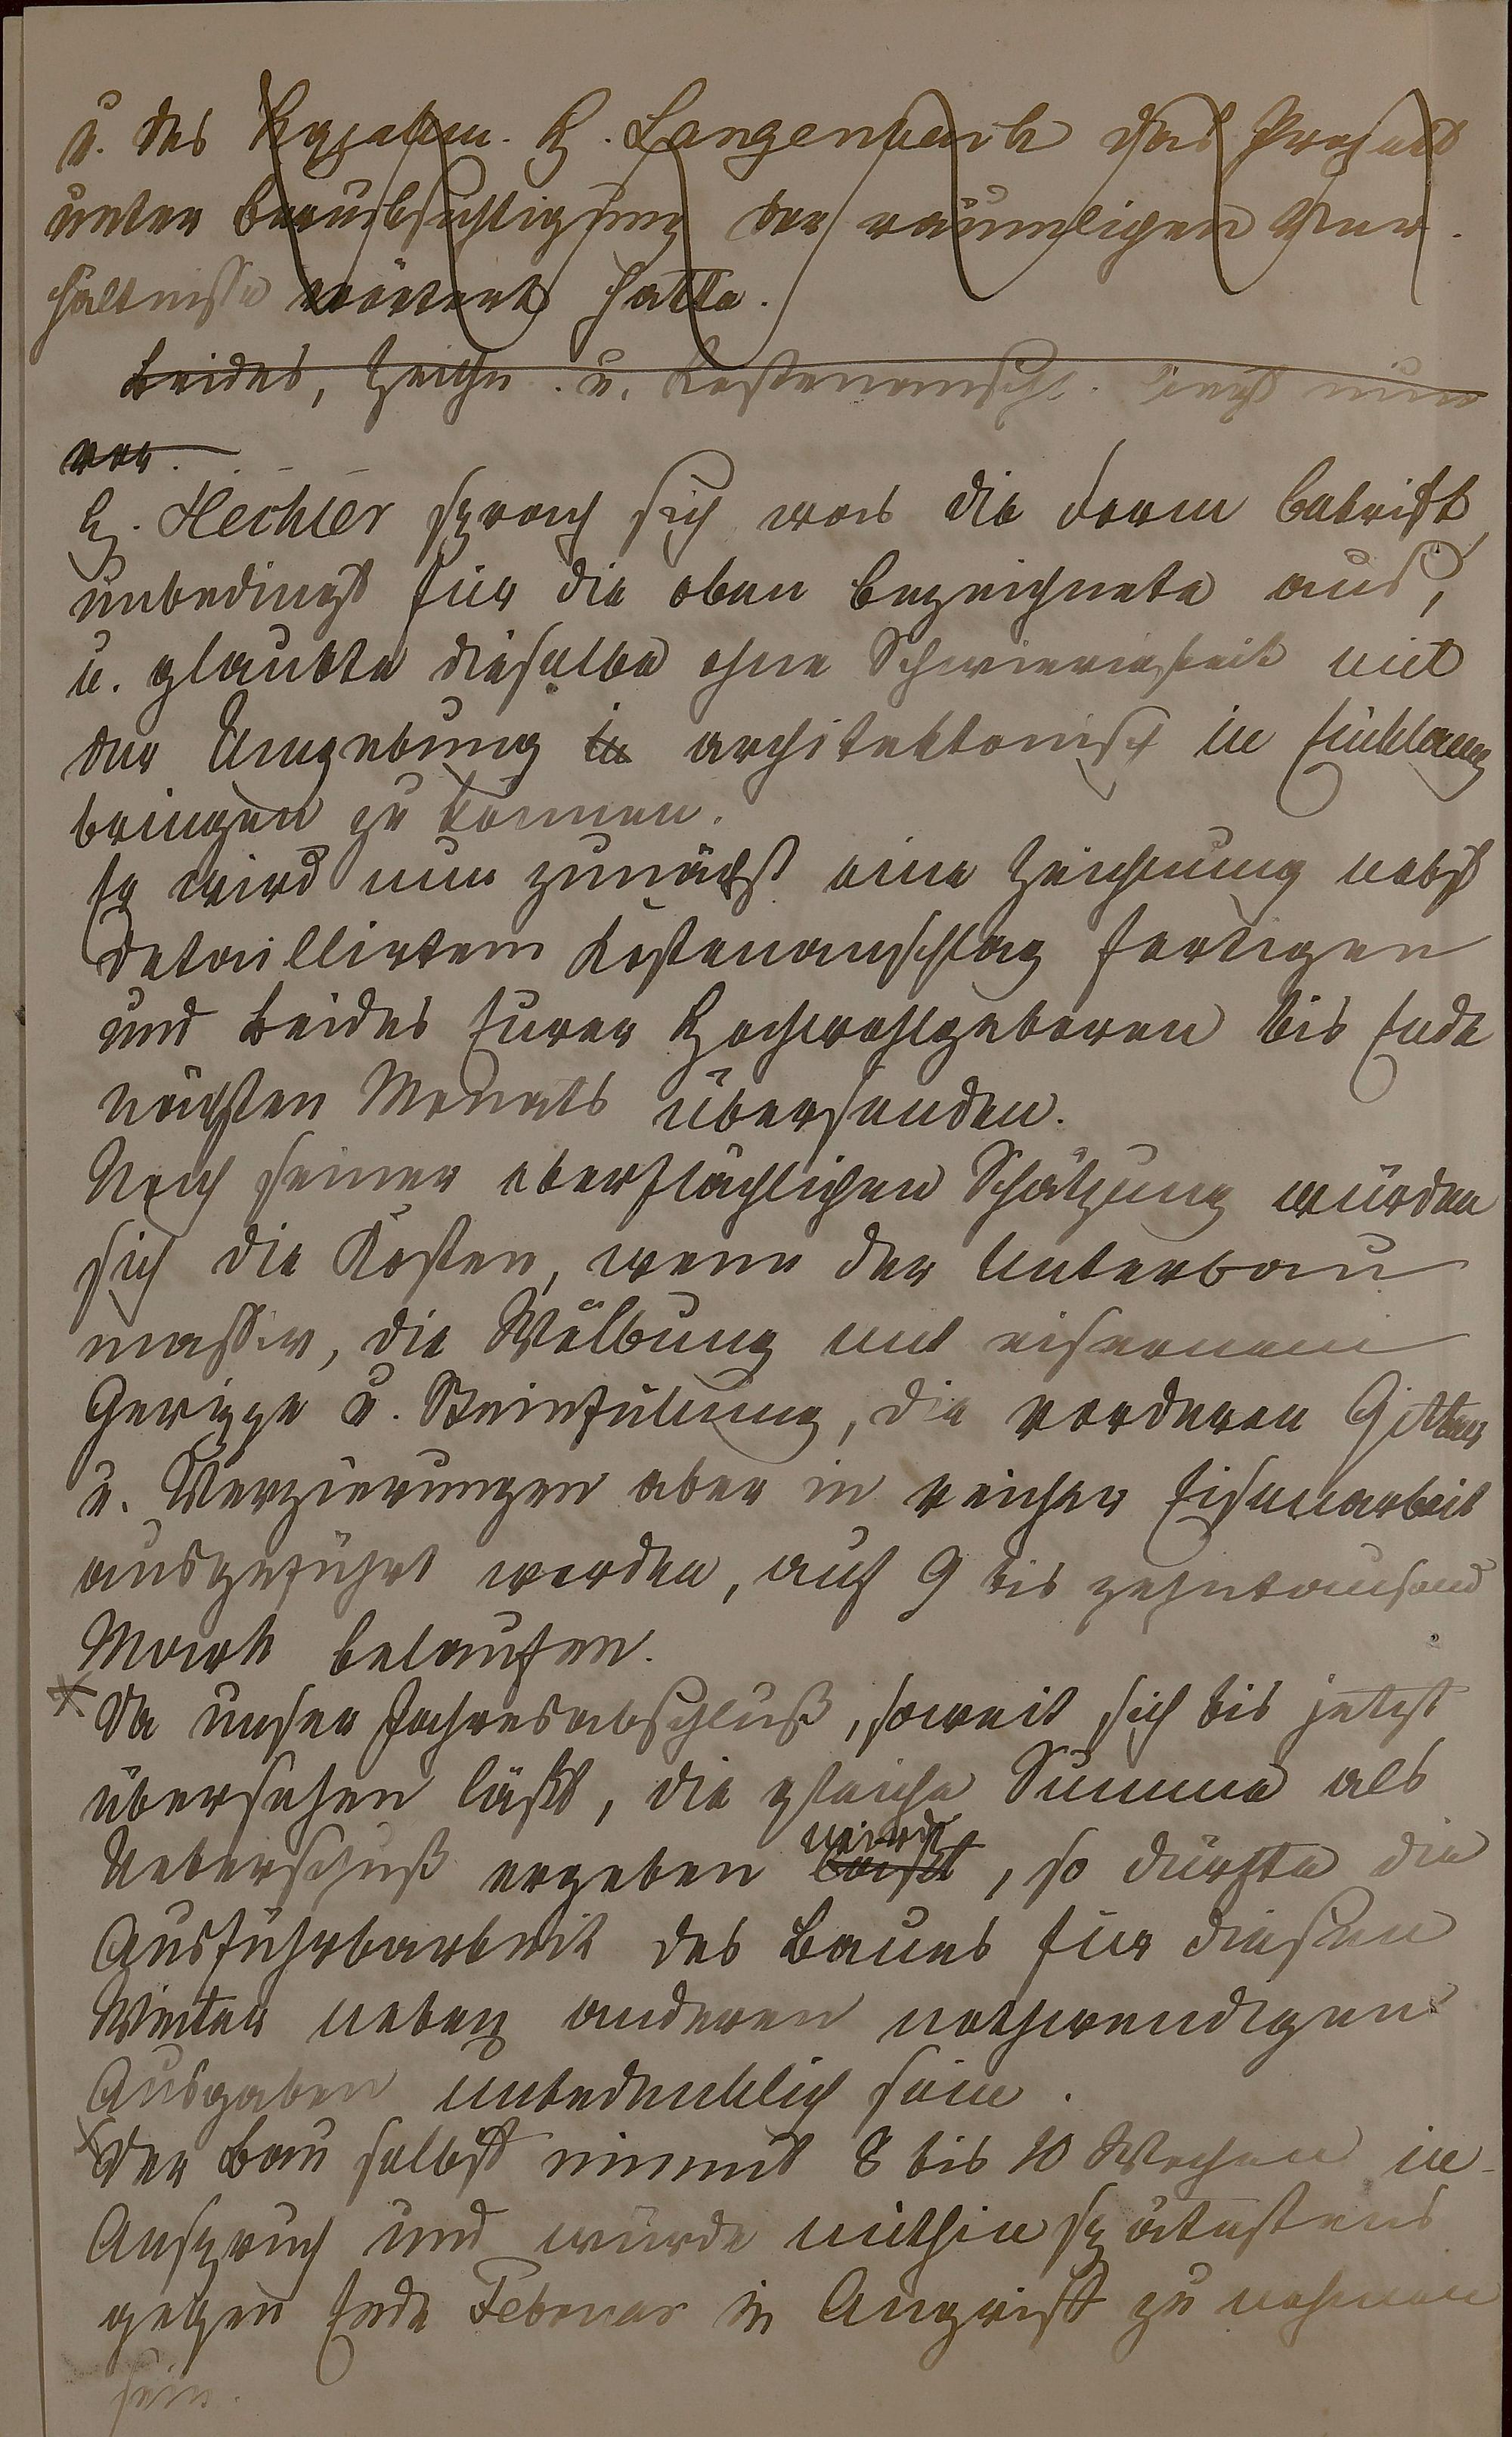 u. des H. Langenbach das Projekt
unter Berücksichtigung der räumligen Ver-
hältnisse erörtert hatte.
Beides, Zeichn. u. Kostenanschl. liegt nun
vor.
H. Hechler sprach sich was die Form betrift
unbedingt für die oben bezeichnete aus,
u. glaubte dieselbe ohne Schwierigkeit mit
der Umgebung in architektonisch in Einklang
bringen zu können.
Er wird nun zunächst eine Zeichnung nebst
detaillirtem Kostenanschlag fertigen
und Beides Eurer Hochwohlgeboren bis Ende
nächsten Monats übersenden.
Nach seiner oberflächlichen Schätzung würden
sich die Kosten, wenn der Unterbau
massiv, die Wölbung mit eisernem
Gerippe u. Steinfüllung, die vorderen Gitter
u. Verzierungen aber in reicher Eisenarbeit
ausgeführt werden, auf 9 bis zehntausend
Mark belaufen.
Da unser Jahresabschluß, soweit sich bis jetzt
übersehen läßt, die gleiche Summe als
wird
Ueberschuß ergeben , so dürfte die
Ausführbarkeit des Baues für diesen
Winter neben anderen nothwendigen
Ausgaben unbedenklich sein.
Der Bau selbst nimmt 8 bis 10 Wochen in
Anspruch und würde mithin spätestens
gegen Ende Februar in Angriff zu nehmen
sein.